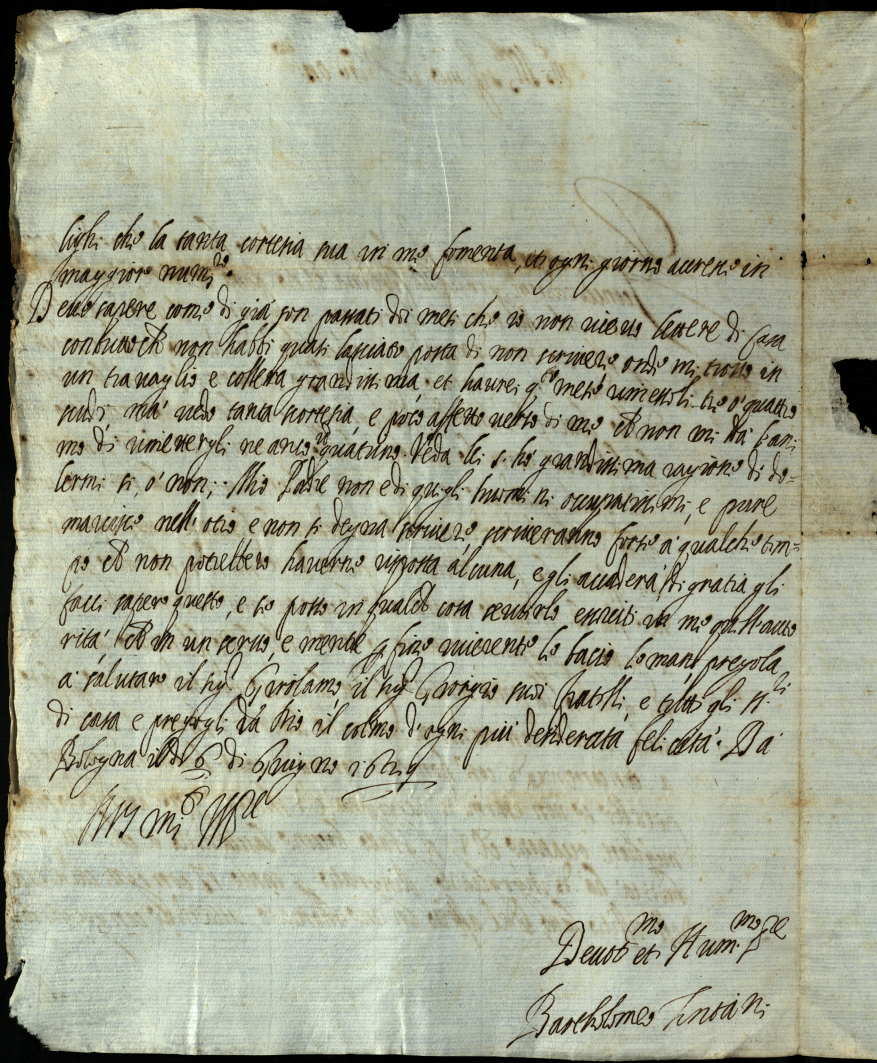 lighi che la tanta cortesia sua in me fomenta, et ogni giorno accresce in
maggior num.ro
Deve sapere come di già son passati doi mesi che io non ricevo lettere di casa
con tutto ch non habbi quasi lasciato posta di non scrivere, onde mi trovo in
un travaglio e collera grandissima, et haverei rimessoli tre o quattro
scudi, ma vedo tanta scortesia, e poco affetto verso di me ch non mi dà l'ani
mo di rimetergli ne anco un quatrino. Veda lei s'hò grandissima ragione di do=
lermi si, ò non; Mio Padre non è di quegli huomini occupatissimi, e pure
marcisce nell'otio e non si degna scrivere, scriveranno forse à qualche tem=
po ch non potrebbero haverne risposta alcuna, e gli accaderà, di gratia gli
facci sapere questo, e se posso in qualch cosa servirlo esserciti in me quell'auto
rità ch in un servo, e mentre per fine riverente le bacio le mani pregola
a salutare il sig.r Girolamo, il sig.r Giorgio suoi fratelli, e tutti gli s.ri
di casa e pregogli dà Dio il colmo d'ogni più desiderata felicità. Da
Bologna il di 6 di Giugno 1629
Di VS mi
Devot.mo et Hum.mo
Bartholomeo